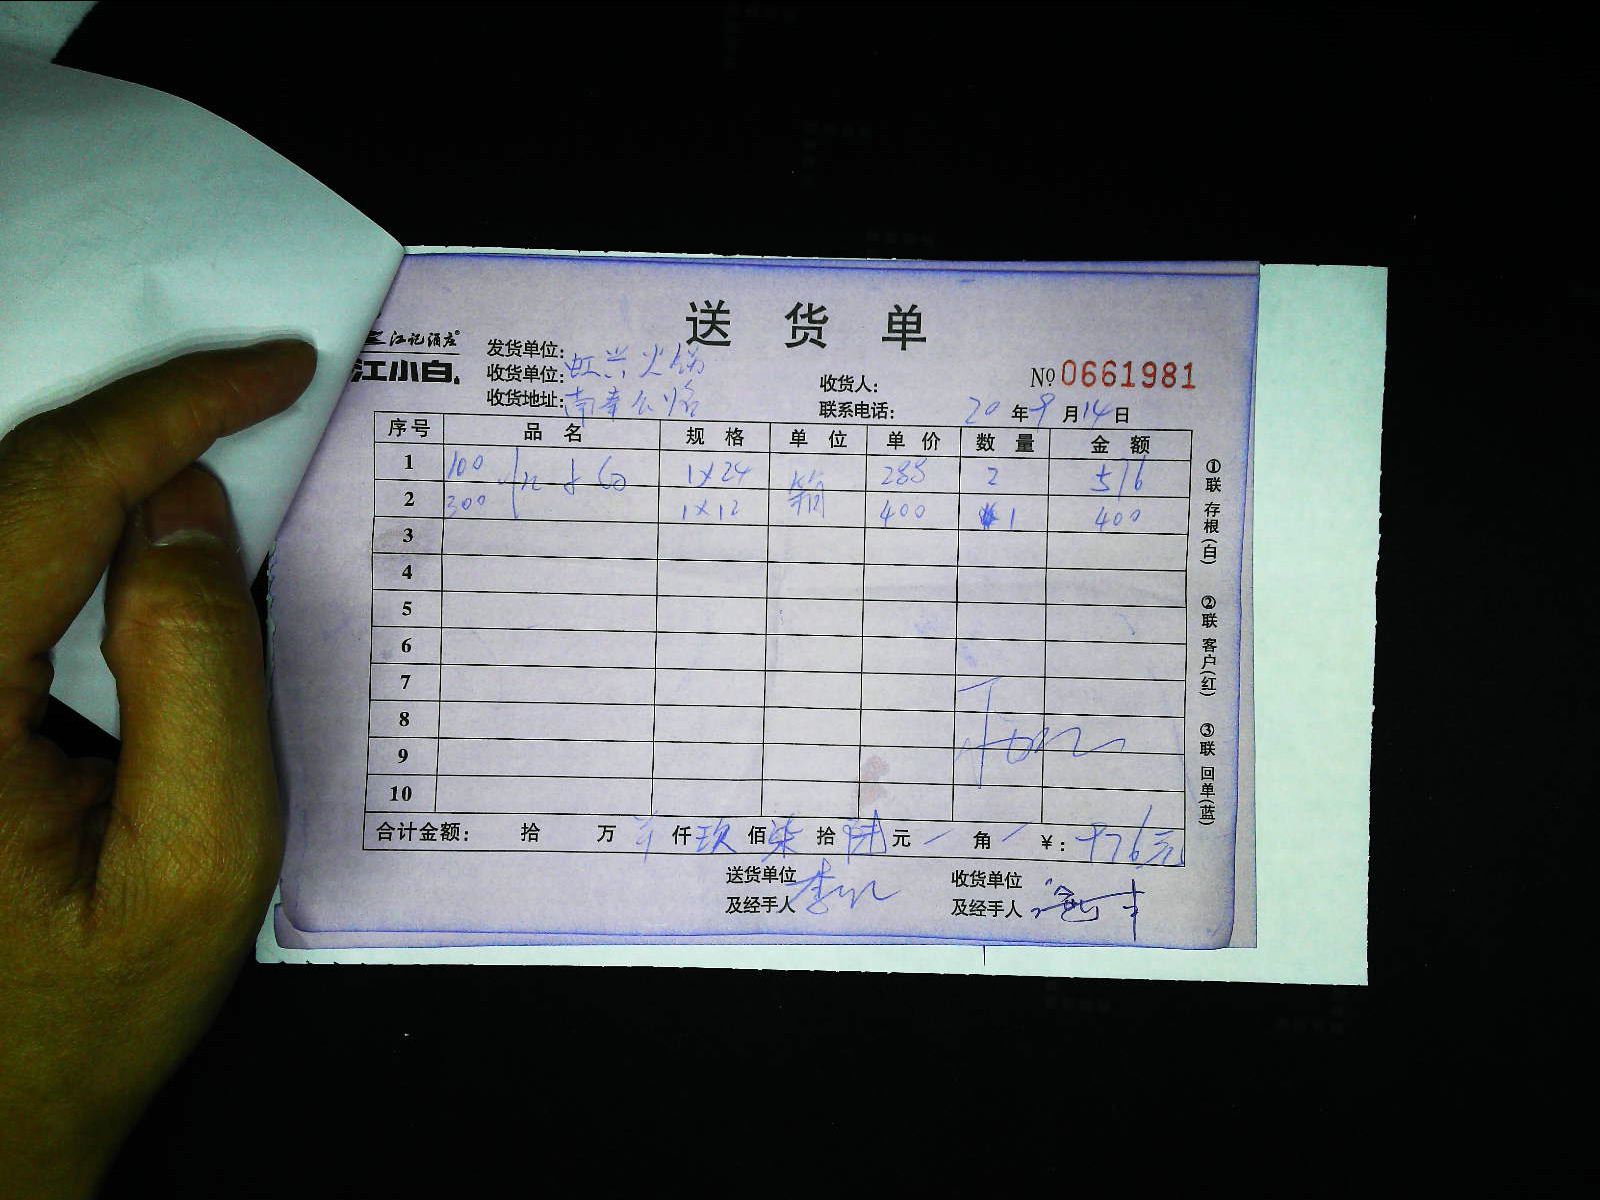 送 货 单
江记酒庄
江小白
发货单位:
收货单位: 虹兴火锅
收货地址: 南奉公路
收货人:
联系电话:
№ 0661981
20 年 9 月 14 日
序号 品 名 规 格 单 位 单 价 数 量 金 额
1 100 江小白 1×24 箱 288 2 576
2 300 1×12 400 1 400
3
4
5
6
7
8
9
10
合计金额: 拾 万 仟 玖 佰 柒 拾 陆 元 角 ¥: 976元
送货单位
及经手人
收货单位
及经手人
①联 存根(白) ②联 客户(红) ③联 回单(蓝)